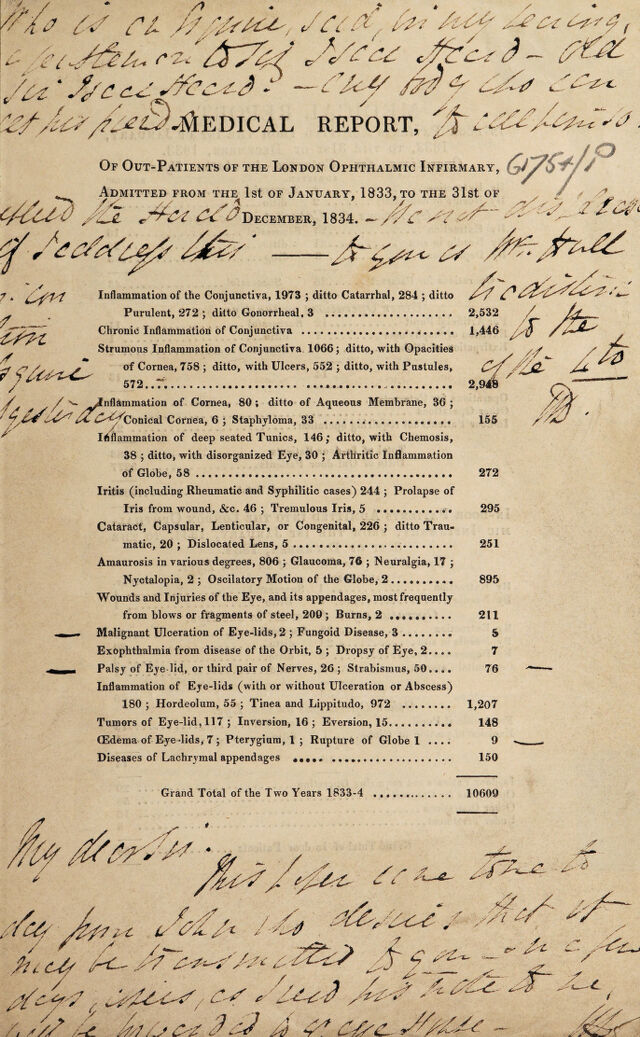 Who is an Squire, said, in my hearing,
a gentleman to Sir Isaac Heard – Old
Sir Isaac Heard. – any body who can
get his
MEDICAL REPORT,
to call himself
Of Out-Patients of the London Ophthalmic Infirmary,
6175+/P
Admitted from the 1st of January, 1833, to the 31st of
the Herald
December, 1834.
of I address this — to you as Mr. Hull
Inflammation of the Conjunctiva, 1973 ; ditto Catarrhal, 284 ; ditto
Purulent, 272 ; ditto Gonorrheal, 3 .................. 2,532
to the
Chronic Inflammation of Conjunctiva ...................... 1,446
Strumous Inflammation of Conjunctiva 1066; ditto, with Opacities
of Cornea, 758 ; ditto, with Ulcers, 552 ; ditto, with Pustules,
572.................................................. 2,948
of the 4to
yesterday
Inflammation of Cornea, 80 ; ditto of Aqueous Membrane, 36 ;
Conical Cornea, 6 ; Staphyloma, 33 .................. 155
Inflammation of deep seated Tunics, 146 ; ditto, with Chemosis,
38 ; ditto, with disorganized Eye, 30 ; Arthritic Inflammation
of Globe, 58 ........................................ 272
Iritis (including Rheumatic and Syphilitic cases) 244 ; Prolapse of
Iris from wound, &c. 46 ; Tremulous Iris, 5 ............ 295
Cataract, Capsular, Lenticular, or Congenital, 226 ; ditto Trau-
matic, 20 ; Dislocated Lens, 5 ......................... 251
Amaurosis in various degrees, 806 ; Glaucoma, 76 ; Neuralgia, 17 ;
Nyctalopia, 2 ; Oscilatory Motion of the Globe, 2.......... 895
Wounds and Injuries of the Eye, and its appendages, most frequently
from blows or fragments of steel, 209 ; Burns, 2 .......... 211
— Malignant Ulceration of Eye-lids, 2 ; Fungoid Disease, 3 ........ 5
Exophthalmia from disease of the Orbit, 5 ; Dropsy of Eye, 2.... 7
— Palsy of Eye-lid, or third pair of Nerves, 26 ; Strabismus, 50.... 76 —
Inflammation of Eye-lids (with or without Ulceration or Abscess)
180 ; Hordeolum, 55 ; Tinea and Lippitudo, 972 ........ 1,207
Tumors of Eye-lid, 117 ; Inversion, 16 ; Eversion, 15.......... 148
Œdema of Eye-lids, 7 ; Pterygium, 1 ; Rupture of Globe 1 .... 9 —
Diseases of Lachrymal appendages ..... .................. 150
Grand Total of the Two Years 1833-4 ............ 10609
My dear Sir.
This paper came to me to
day from John who desires that it
may be transmitted to you – in a few
days
will be forwarded to House –